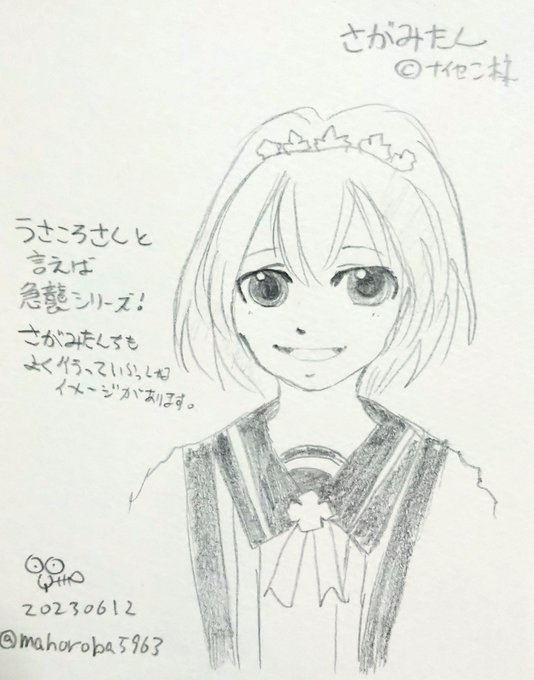 さがみたん
©ナイセン様
うさころさんと
言えば
急襲シリーズ!
さがみたんちも
よく行っていらっしゃる
イメージがあります。
20230612
@mahoroba5963